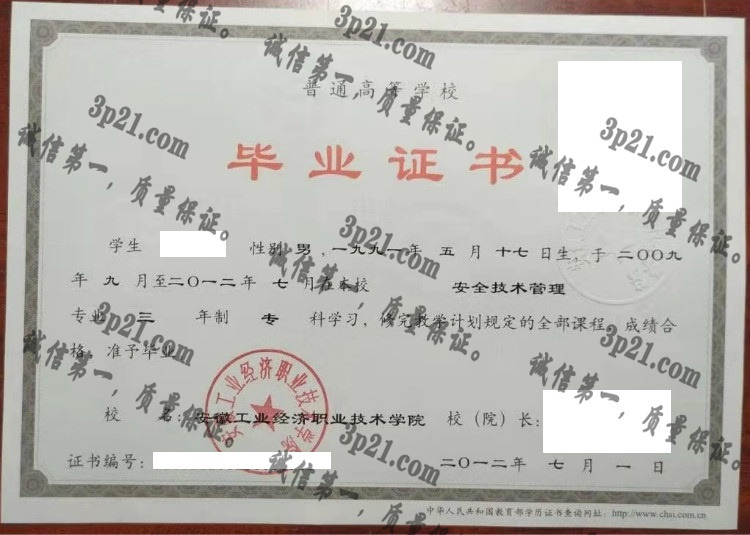 普通高等学校
毕业证书
学生 性别 男，一九九一年 五 月 十七 日生，于 二〇〇九
年 九 月至二〇一二年 七 月在本校 安全技术管理
专业 三 年制 专 科学习，修完教学计划规定的全部课程，成绩合
格，准予毕业
校 名：安徽工业经济职业技术学院 校（院）长：
证书编号： 二〇一二年 七 月 一 日
中华人民共和国教育部学历证书查询网址：http://www.chsi.com.cn
安徽工业经济职业技术学院
3p21.com
诚信第一，质量保证。
3p21.com
诚信第一，质量保证。
3p21.com
诚信第一，质量保证。
3p21.com
诚信第一，质量保证。
3p21.com
诚信第一，质量保证。
3p21.com
诚信第一，质量保证。
3p21.com
诚信第一，质量保证。